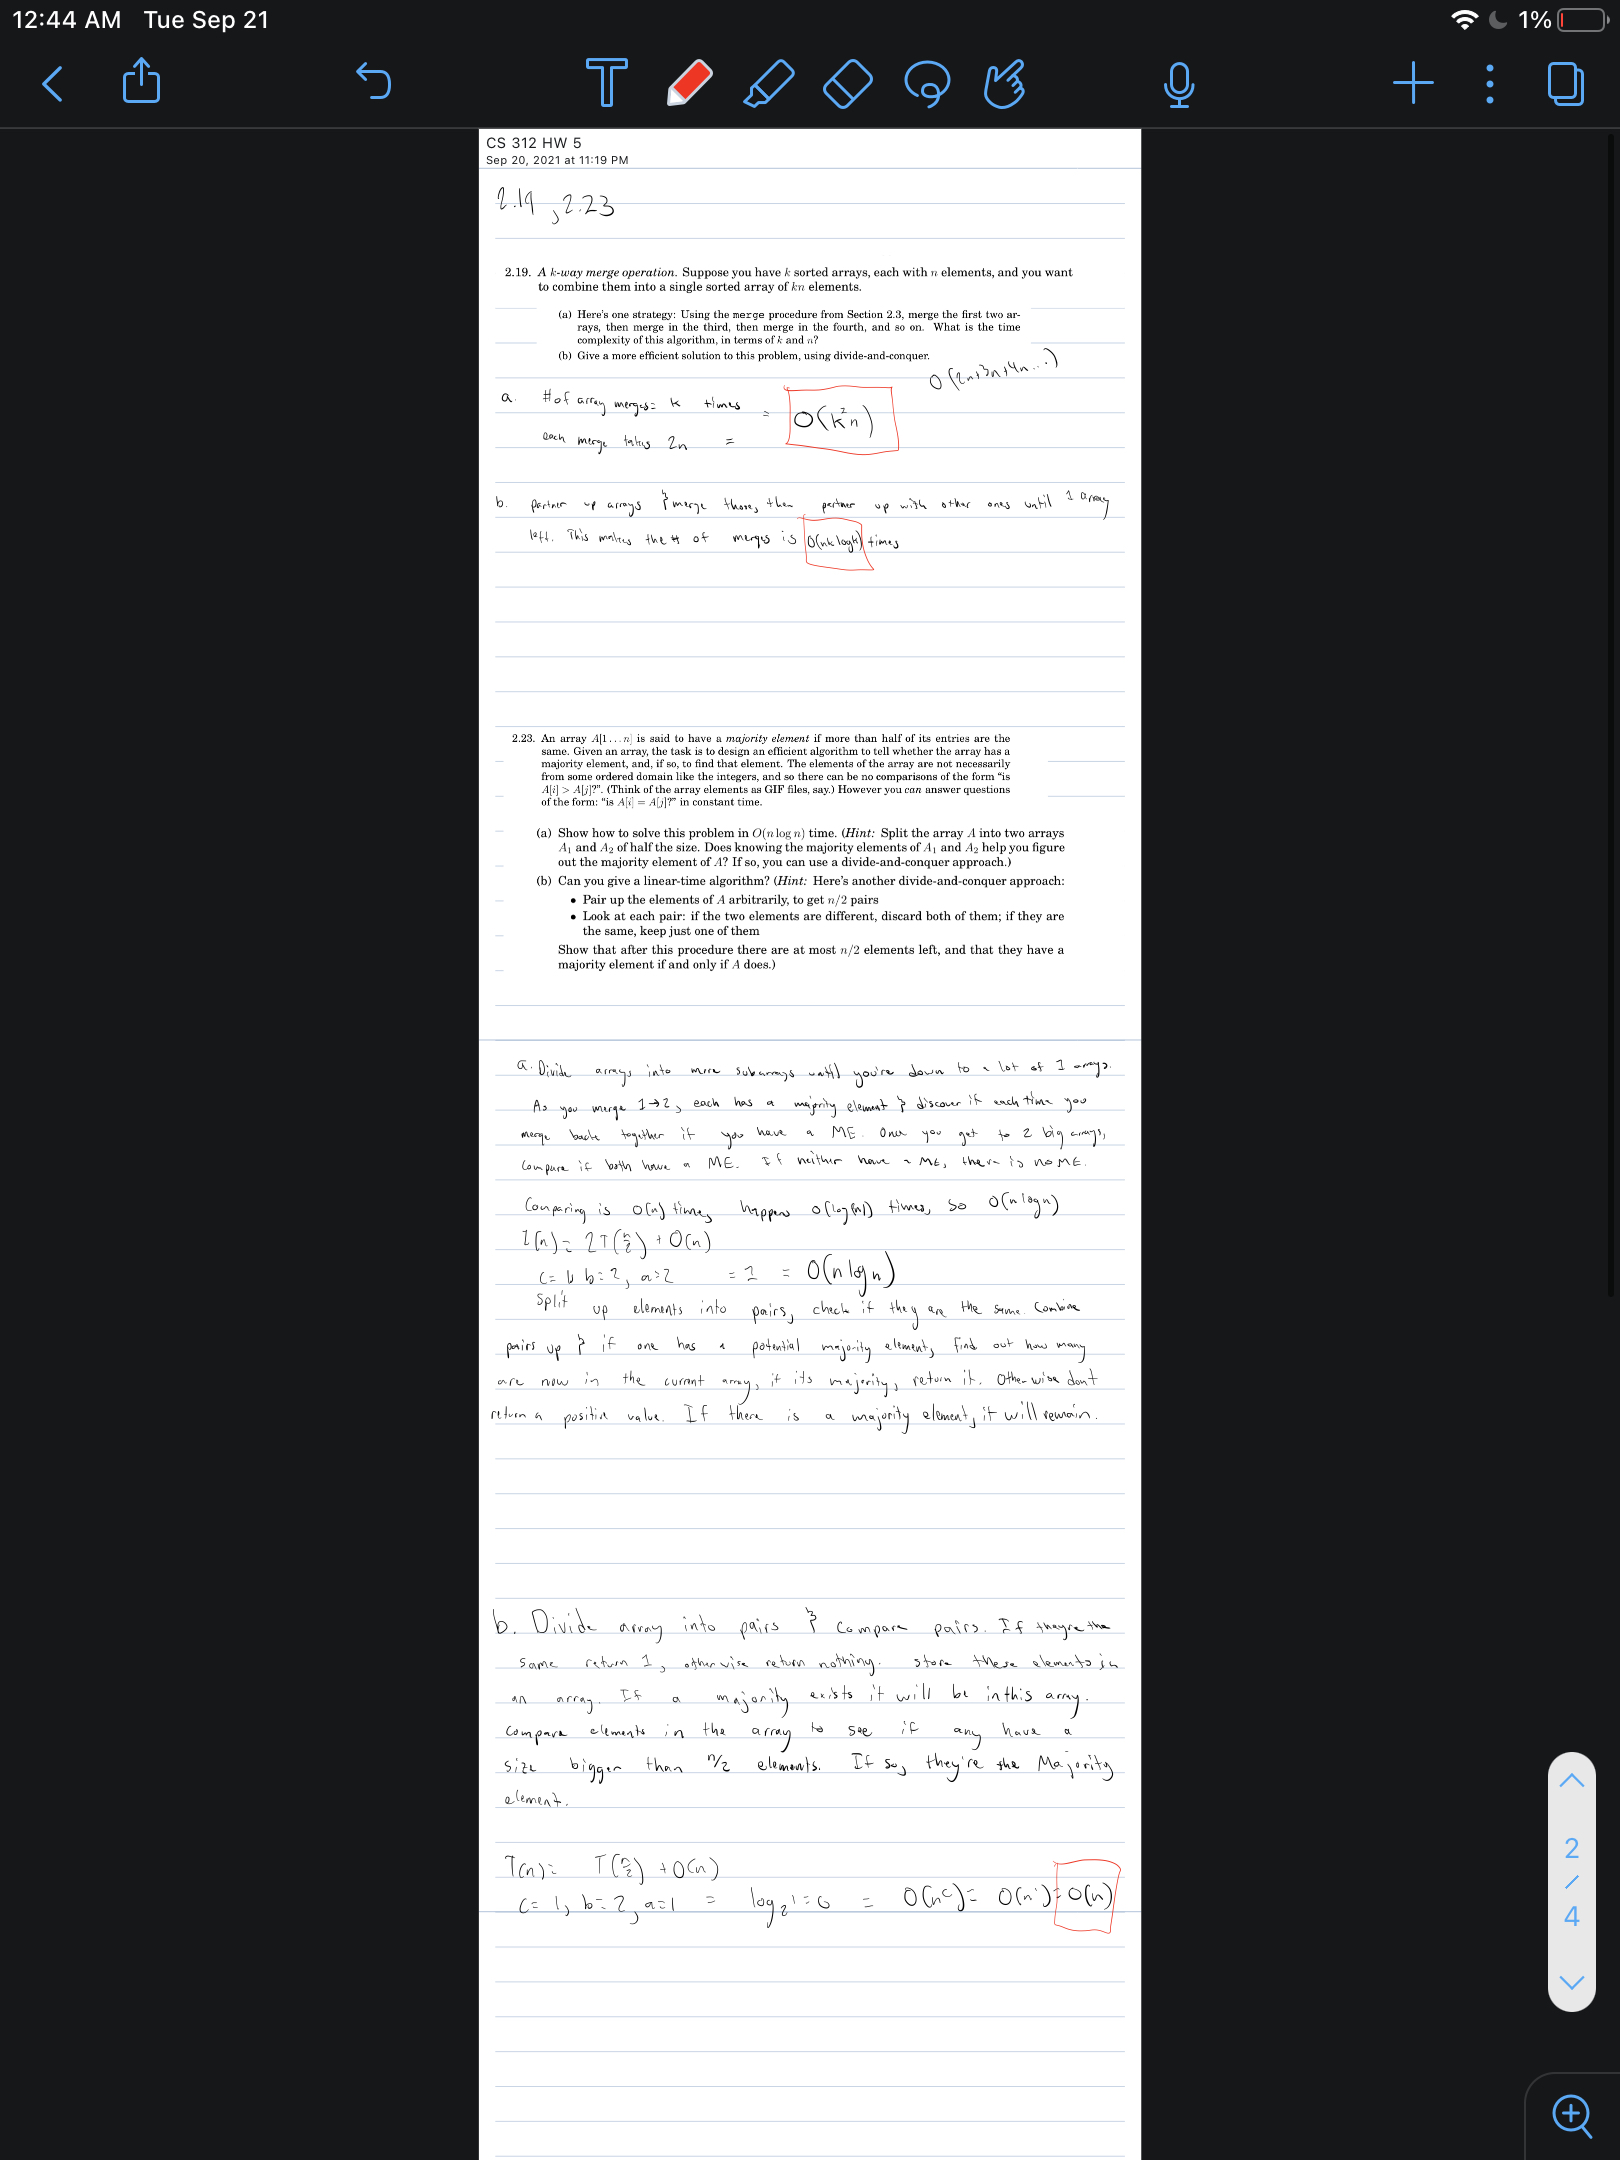 12:44 AM Tue Sep 21
1%
CS 312 HW 5
Sep 20, 2021 at 11:19 PM
2.19, 2.23
2.19. A k-way merge operation. Suppose you have k sorted arrays, each with n elements, and you want
to combine them into a single sorted array of kn elements.
(a) Here's one strategy: Using the merge procedure from Section 2.3, merge the first two ar-
rays, then merge in the third, then merge in the fourth, and so on. What is the time
complexity of this algorithm, in terms of k and n?
(b) Give a more efficient solution to this problem, using divide-and-conquer.
O(2n+3n+4n...)
a. # of array merges= k times = O(k²n)
each merge takes 2n =
b. Partner up arrays & merge those, then partner up with other ones until 1 array
left. This makes the # of merges is O(nk logk) times
2.23. An array A[1...n] is said to have a majority element if more than half of its entries are the
same. Given an array, the task is to design an efficient algorithm to tell whether the array has a
majority element, and, if so, to find that element. The elements of the array are not necessarily
from some ordered domain like the integers, and so there can be no comparisons of the form "is
A[i] > A[j]?". (Think of the array elements as GIF files, say.) However you can answer questions
of the form: "is A[i] = A[j]?" in constant time.
(a) Show how to solve this problem in O(n log n) time. (Hint: Split the array A into two arrays
A₁ and A₂ of half the size. Does knowing the majority elements of A₁ and A₂ help you figure
out the majority element of A? If so, you can use a divide-and-conquer approach.)
(b) Can you give a linear-time algorithm? (Hint: Here's another divide-and-conquer approach:
• Pair up the elements of A arbitrarily, to get n/2 pairs
• Look at each pair: if the two elements are different, discard both of them; if they are
the same, keep just one of them
Show that after this procedure there are at most n/2 elements left, and that they have a
majority element if and only if A does.)
a. Divide arrays into more subarrays until you're down to a lot of 1 arrays.
As you merge 1→2, each has a majority element & discover if each time you
merge back together if you have a ME. Once you get to 2 big arrays,
compare if both have a ME. If neither have a ME, there is no ME.
Comparing is O(n) times, happens O(log(n)) times, so O(n logn)
T(n)= 2T(n/2) + O(n)
c= 1, b=2, a=2 = 1 = O(n log n)
Split up elements into pairs, check if they are the same. Combine
pairs up & if one has a potential majority element, find out how many
are now in the current array, if its majority, return it. Otherwise dont
return a positive value. If there is a majority element, it will remain.
b. Divide array into pairs & compare pairs. If theyre the
same return 1, otherwise return nothing. Store these elements in
an array. If a majority exists it will be in this array.
Compare elements in the array to see if any have a
size bigger than n/2 elements. If so, they're the Majority
element.
T(n)= T(n/2) + O(n)
c= 1, b=2, a=1 = log₂1=0 = O(nᶜ)= O(n¹)= O(n)
2
/
4